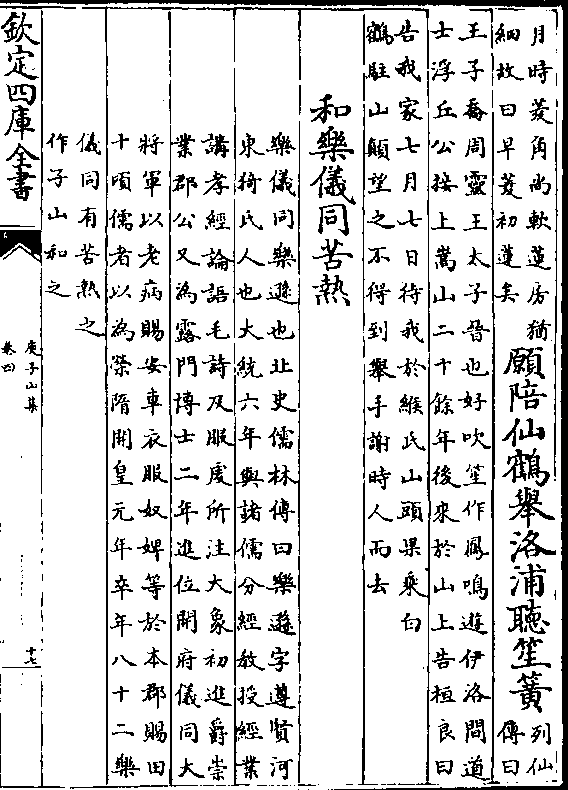 月時菱角尚軟蓮房猶
細故曰早菱初蓮矣
願陪仙鶴舉洛浦聽笙簧
列仙
傳曰
王子喬周靈王太子晉也好吹笙作鳳鳴遊伊洛間道
士浮丘公接上嵩山二十餘年後來於山上告桓良曰
告我家七月七日待我於緱氏山頭果乘白
鶴駐山顛望之不得到舉手謝時人而去
和樂儀同苦熱
樂儀同樂遜也北史儒林傳曰樂遜字遵賢河
東猗氏人也大統六年與諸儒分經教授經業
講孝經論語毛詩及服虔所注大象初進爵崇
業郡公又為露門博士二年進位開府儀同大
將軍以老病賜安車衣服奴婢等於本郡賜田
十頃儒者以為榮隋開皇元年卒年八十二樂
儀同有苦熱之
作子山和之
欽定四庫全書
庾子山集
卷四
十七